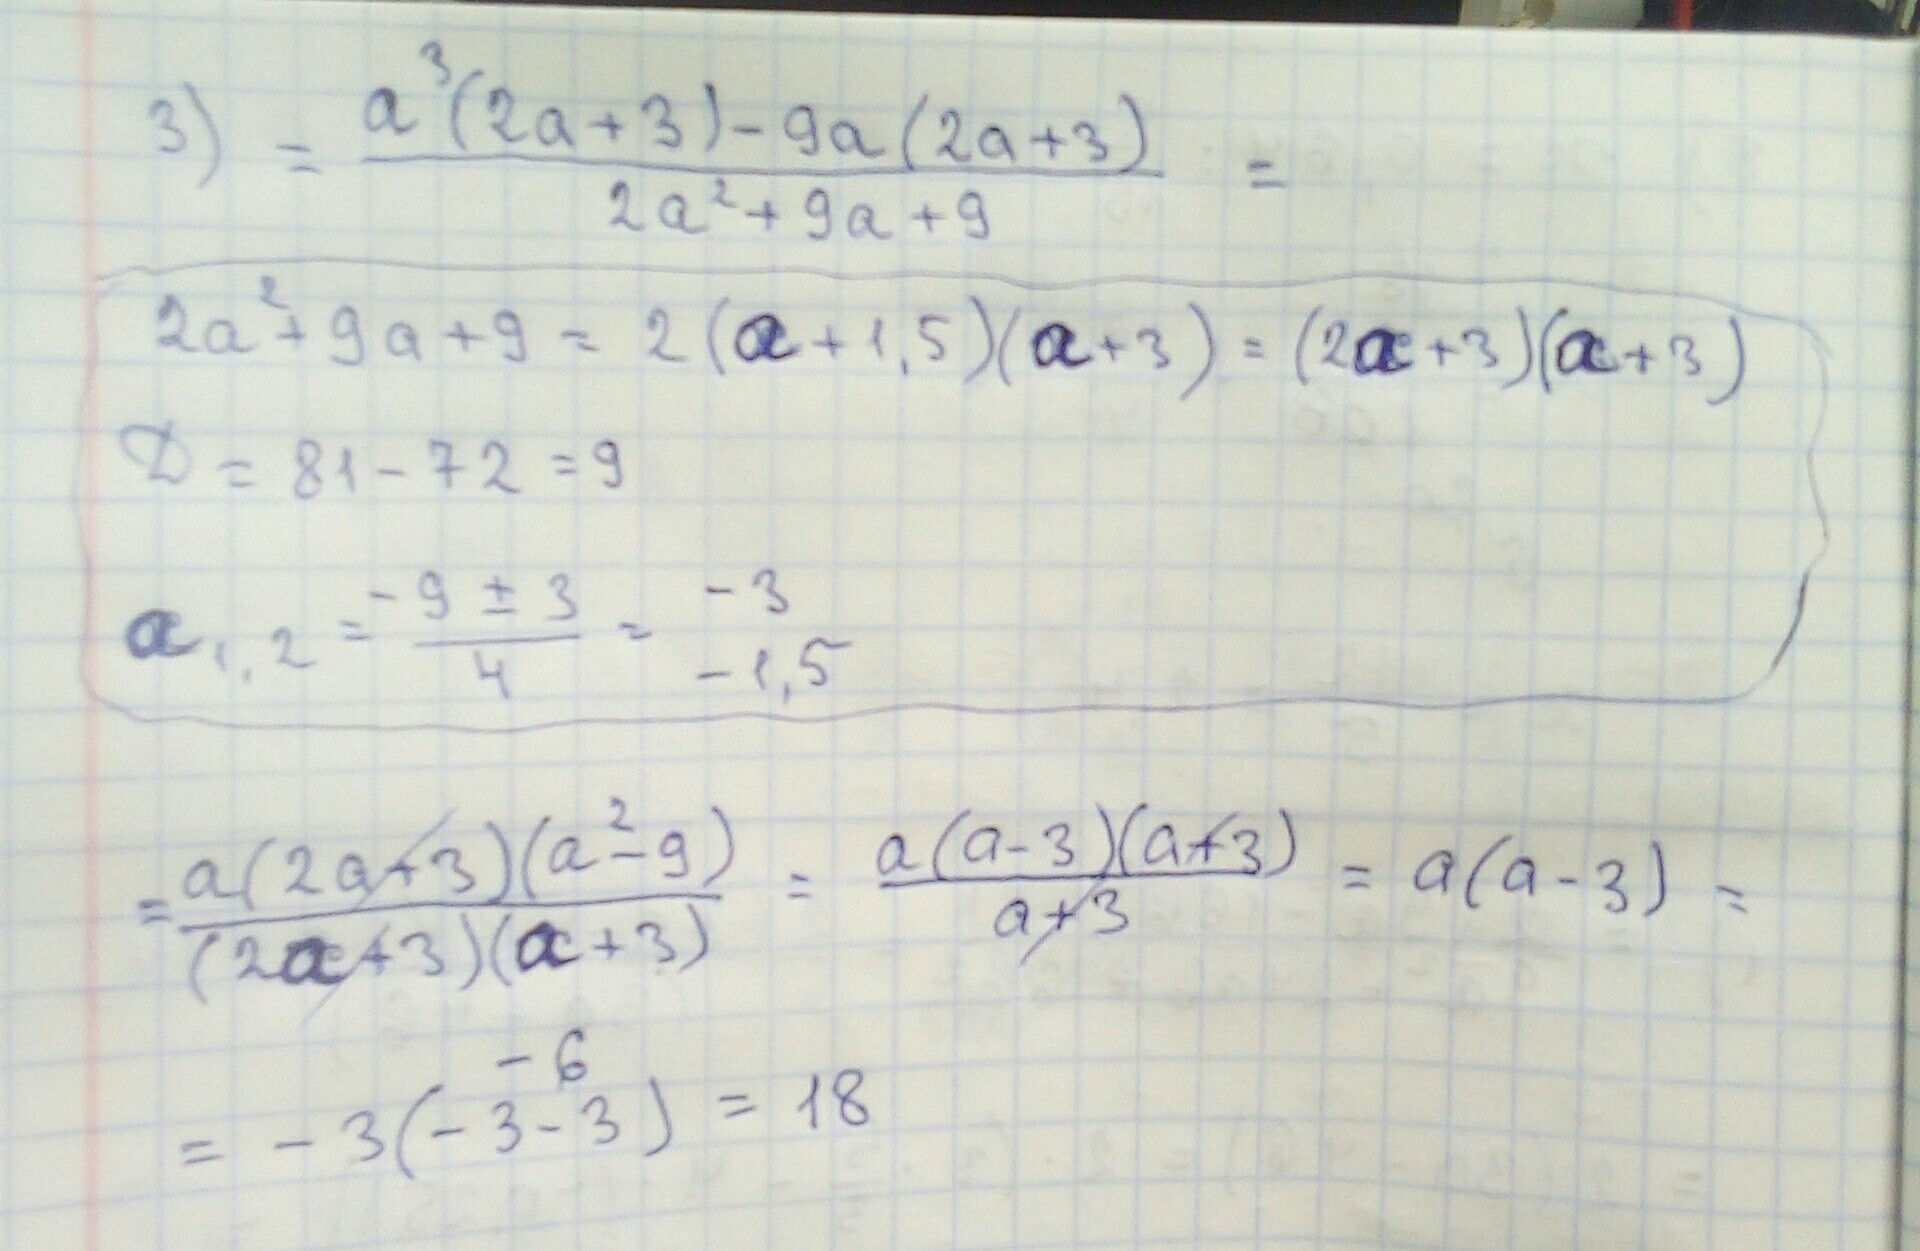 3) = a³(2a+3)-9a(2a+3) / 2a²+9a+9 =
2a²+9a+9 = 2(a+1,5)(a+3) = (2a+3)(a+3)
D = 81-72 = 9
a₁,₂ = -9±3 / 4 = -3 -1,5
= a(2a+3)(a²-9) / (2a+3)(a+3) = a(a-3)(a+3) / a+3 = a(a-3) =
-6
= -3(-3-3) = 18